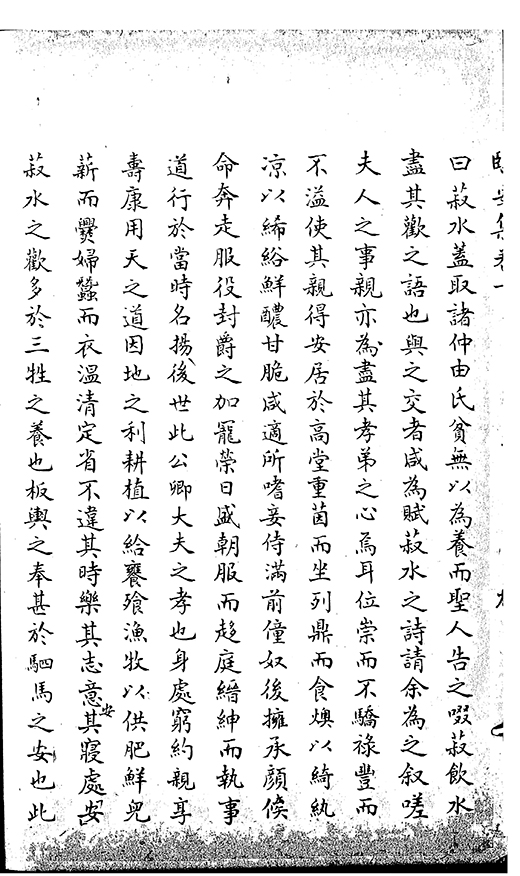 臥安集卷一
曰菽水蓋取諸仲由氏貧無以為養而聖人告之啜菽飲水
盡其歡之語也與之交者咸為賦菽水之詩請余為之叙嗟
夫人之事親亦為盡其孝弟之心焉耳位崇而不驕祿豐而
不溢使其親得安居於高堂重茵而坐列鼎而食燠以綺紈
凉以絺綌鮮醲甘脆咸適所嗜妾侍滿前僮奴後擁承顏俟
命奔走服役封爵之加寵榮日盛朝服而趍庭縉紳而執事
道行於當時名揚後世此公卿大夫之孝也身處窮約親享
壽康用天之道因地之利耕植以給饔飱漁牧以供肥鮮兒
薪而爨婦蠶而衣溫清定省不違其時樂其志意其安寢處安
菽水之歡多於三牲之養也板輿之奉甚於駟馬之安也此